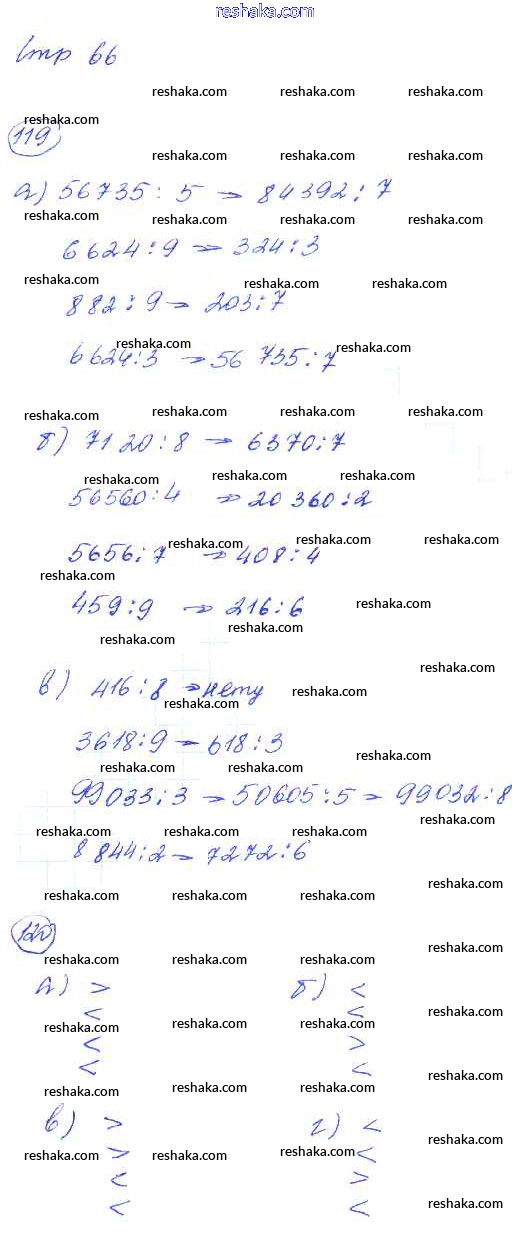 reshaka.com
Стр 66
reshaka.com reshaka.com reshaka.com
reshaka.com
119
reshaka.com reshaka.com reshaka.com
а) 56735 : 5 → 84392 : 7
reshaka.com reshaka.com reshaka.com reshaka.com
6624 : 9 → 324 : 3
reshaka.com reshaka.com reshaka.com
882 : 9 → 203 : 7
reshaka.com reshaka.com
6624 : 3 → 56 735 : 7
reshaka.com reshaka.com reshaka.com reshaka.com
б) 7120 : 8 → 6370 : 7
reshaka.com reshaka.com reshaka.com
56560 : 4 → 20 360 : 2
reshaka.com reshaka.com reshaka.com
5656 : 7 → 408 : 4
reshaka.com
459 : 9 → 216 : 6
reshaka.com
reshaka.com reshaka.com
reshaka.com
в) 416 : 8 → нету
reshaka.com reshaka.com
3618 : 9 → 618 : 3
reshaka.com
reshaka.com reshaka.com
99033 : 3 → 50605 : 5 → 99032 : 8
reshaka.com
reshaka.com reshaka.com reshaka.com
8 844 : 2 → 7272 : 6
reshaka.com
reshaka.com reshaka.com reshaka.com
120
reshaka.com
reshaka.com reshaka.com reshaka.com
а) > б) <
< <
reshaka.com
reshaka.com reshaka.com reshaka.com
< >
< <
reshaka.com
reshaka.com reshaka.com reshaka.com
в) > г) <
reshaka.com
> <
reshaka.com reshaka.com reshaka.com
< >
< <
reshaka.com